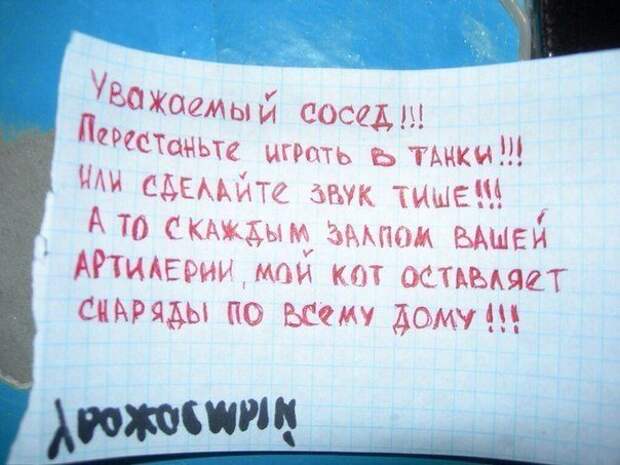 Уважаемый сосед!!!
Перестаньте играть в ТАНКИ!!!
ИЛИ СДЕЛАЙТЕ ЗВУК ТИШЕ!!!
А ТО С КАЖДЫМ ЗАЛПОМ ВАШЕЙ
АРТИЛЕРИИ, МОЙ КОТ ОСТАВЛЯЕТ
СНАРЯДЫ ПО ВСЕМУ ДОМУ!!!